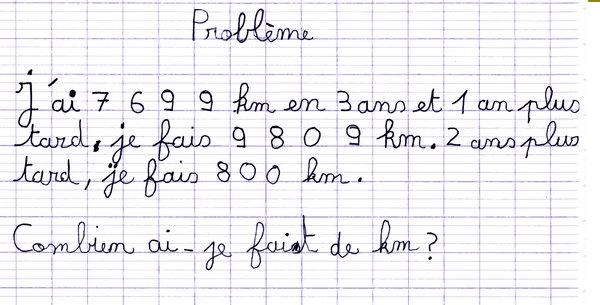 Problème
J'ai 7 6 9 9 km en 3 ans et 1 an plus
tard, je fais 9 8 0 9 km. 2 ans plus
tard, je fais 8 0 0 km.
Combien ai-je fait de km ?